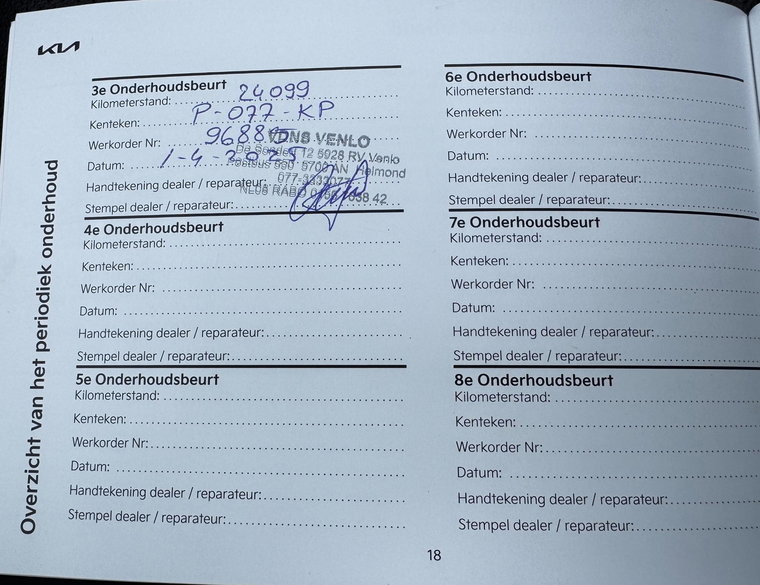 KIA
Overzicht van het periodiek onderhoud
3e Onderhoudsbeurt
Kilometerstand: 24099
Kenteken: P-077-KP
Werkorder Nr:
Datum: 1-4-2025
Handtekening dealer / reparateur:
Stempel dealer / reparateur:
VDNS VENLO
12 5928 RV Venlo
AN Helmond
4e Onderhoudsbeurt
Kilometerstand:
Kenteken:
Werkorder Nr:
Datum:
Handtekening dealer / reparateur:
Stempel dealer / reparateur:
5e Onderhoudsbeurt
Kilometerstand:
Kenteken:
Werkorder Nr:
Datum:
Handtekening dealer / reparateur:
Stempel dealer / reparateur:
6e Onderhoudsbeurt
Kilometerstand:
Kenteken:
Werkorder Nr:
Datum:
Handtekening dealer / reparateur:
Stempel dealer / reparateur:
7e Onderhoudsbeurt
Kilometerstand:
Kenteken:
Werkorder Nr:
Datum:
Handtekening dealer / reparateur:
Stempel dealer / reparateur:
8e Onderhoudsbeurt
Kilometerstand:
Kenteken:
Werkorder Nr:
Datum:
Handtekening dealer / reparateur:
Stempel dealer / reparateur:
18